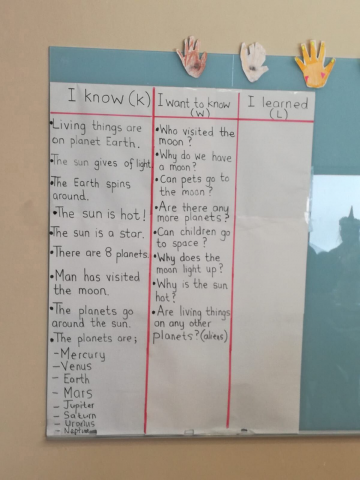 I know (K)
•Living things are
on planet Earth.
•The sun gives of light
•The Earth spins
around.
•The sun is hot!
•The sun is a star.
•There are 8 planets.
•Man has visited
the moon.
•The planets go
around the sun.
•The planets are;
-Mercury
-Venus
-Earth
-Mars
-Jupiter
-Saturn
-Uranus
-Neptune
I want to know
(W)
•Who visited the
moon?
•Why do we have
a moon?
•Can pets go to
the moon?
•Are there any
more planets?
•Can children go
to space?
•Why does the
moon light up?
•Why is the sun
hot?
•Are living things
on any other
planets? (aliens)
I learned
(L)